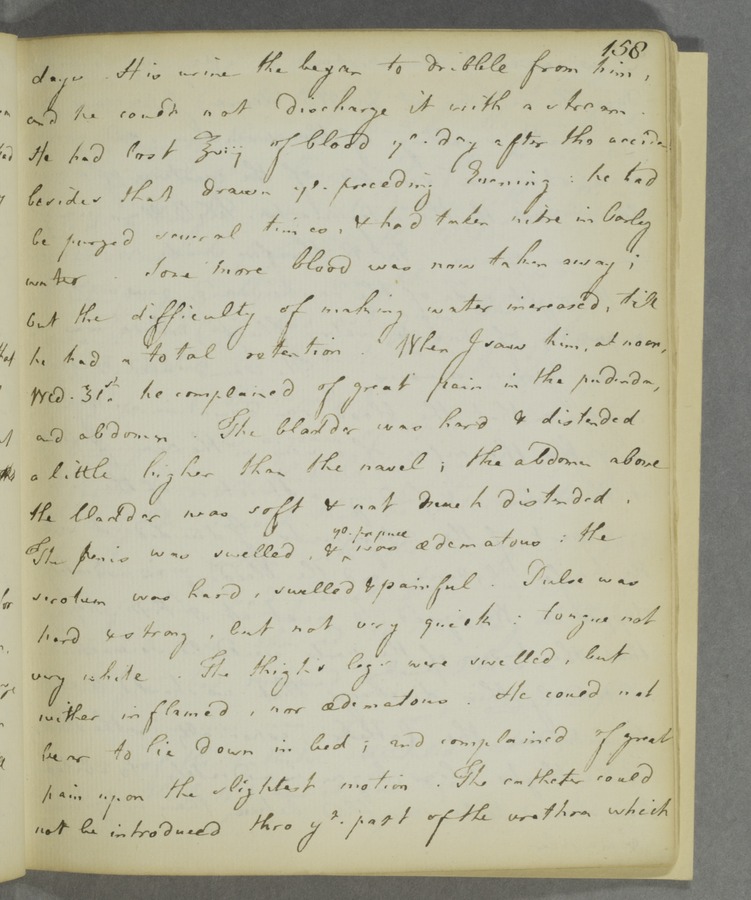 158
days. His urine the began to dribble from him,
and he could not discharge it with a stream.
He had lost ℥viij of blood ye. day after the accide
besides that drawn ye. preceding Evening: he had
be purged several times, & had taken nitre in barley
water. Some more blood was now taken away;
but the difficulty of making water increased, till
he had a total retention. When I saw him, at noon,
Wed. 31st. he complained of great pain in the pudenda,
and abdomen. The bladder was hard & distended
a little higher than the navel; the abdomen above
the bladder was soft & not much distended.
The penis was swelled, & ye. prepuce was œdematous: the
scrotum was hard, swelled & painful. Pulse was
hard & strong, but not very quick: tongue not
very white. The thighs legs were swelled, but
neither inflamed, nor œdematous. He could not
bear to lie down in bed; and complained of great
pain upon the slightest motion. The catheter could
not be introduced thro ye. part of the urethra which